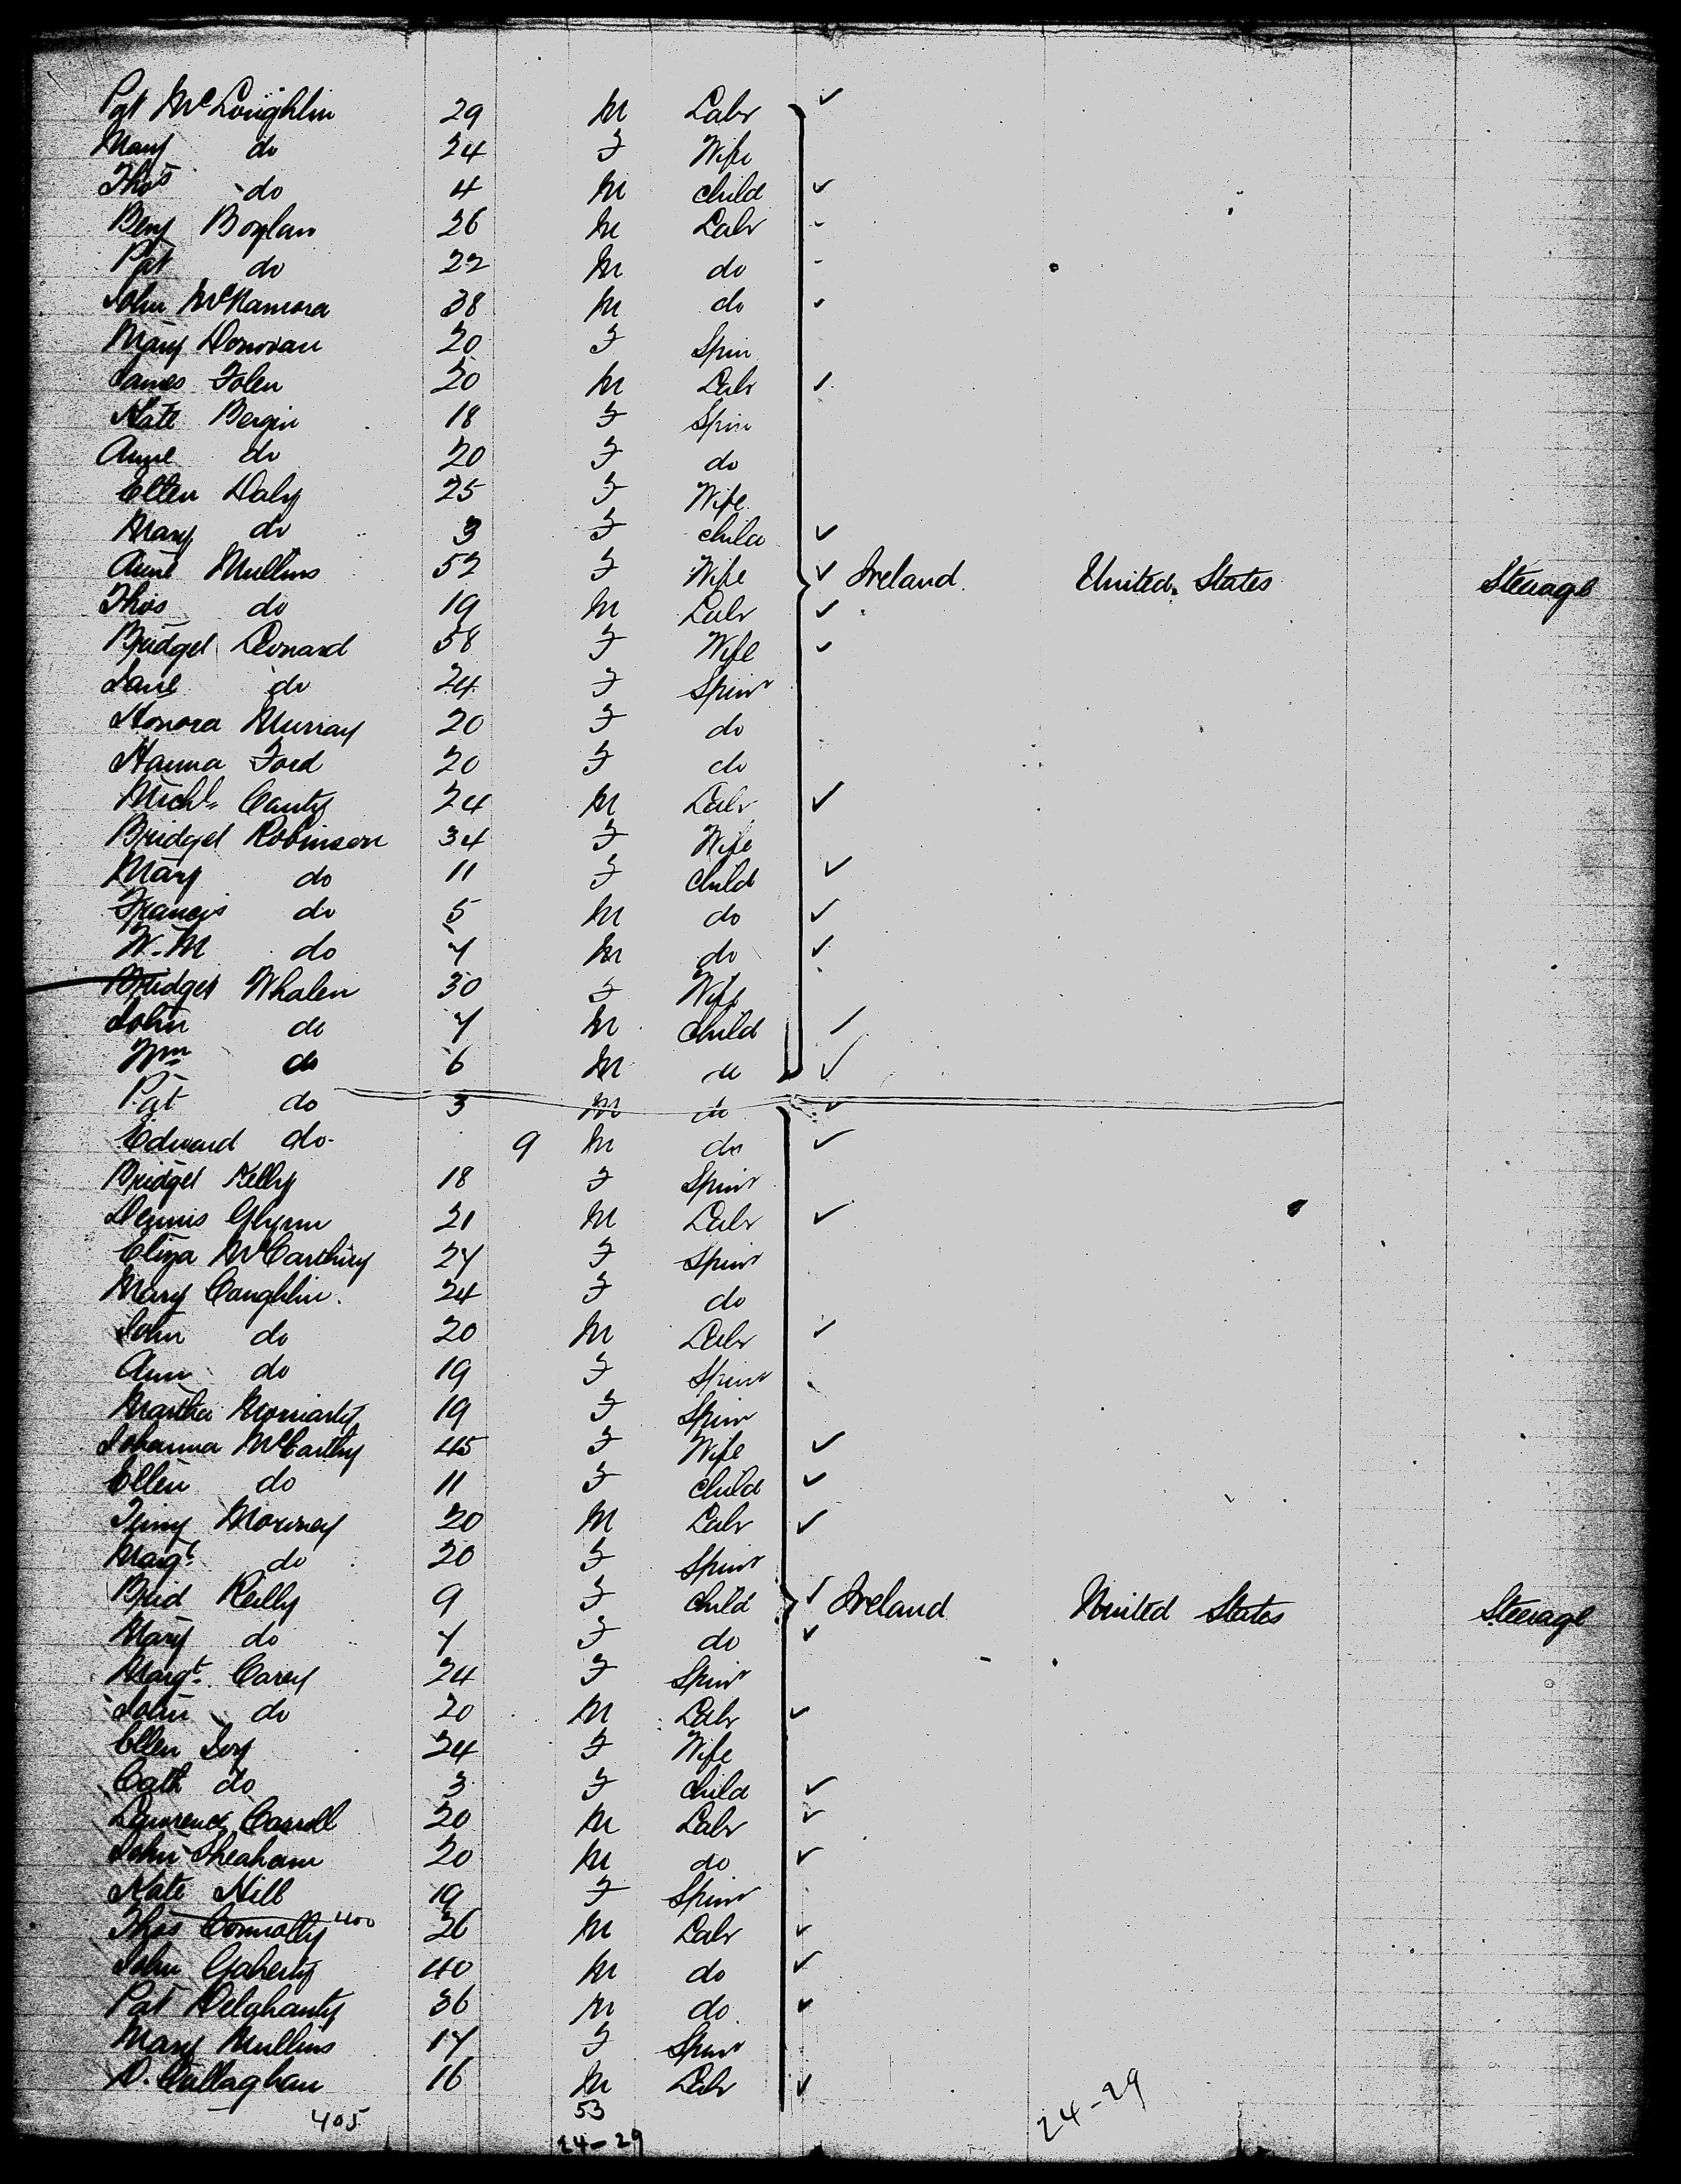 Pat McLoughlin 29 M Labr
Mary do 24 F Wife
Thos do 4 M child
Benj Boylan 26 M Labr
Pat do 22 M do
John McNamora 38 M do
Mary Donovan 20 F Spin
James Folen 20 M Labr
Kate Bergin 18 F Spin
Anne do 20 F do
Ellen Daly 25 F Wife
Mary do 3 F child
Anne Mullins 52 F Wife Ireland United States Steerage
Thos do 19 M Labr
Bridget Leonard 58 F Wife
Jane do 24 F Spinr
Honora Murray 20 F do
Hanna Ford 20 F do
Michl Canty 24 M Labr
Bridget Robinson 34 F Wife
Mary do 11 F child
Francis do 5 M do
W.M do 7 M do
Bridget Whalen 30 F Wife
John do 7 M child
Wm do 6 M do
Pat do 3 M do
Edward do 9 M do
Bridget Kelly 18 F Spinr
Dennis Glynn 21 M Labr
Eliza McCarthy 27 F Spinr
Mary Coughlin 24 F do
John do 20 M Labr
Ann do 19 F Spinr
Martha Moriarty 19 F Spinr
Johanna McCarthy 45 F Wife
Ellen do 11 F child
Timy 20 M Labr
Margt do 20 F Spinr
Brid Reilly 9 F child Ireland United States Steerage
Mary do 7 F do
Margt Carey 24 F Spinr
John do 20 M Labr
Ellen 24 F Wife
Cath do 3 F child
Lawrence Carroll 20 M Labr
John Sheaham 20 M do
Kate Hill 19 F Spinr
Thos Connolly 400 26 M Labr
John Gaherty 40 M do
Pat Delahanty 36 M do
Mary Mullins 17 F Spinr
D. Callaghan 16 M Labr
405 53
24-29 24-29